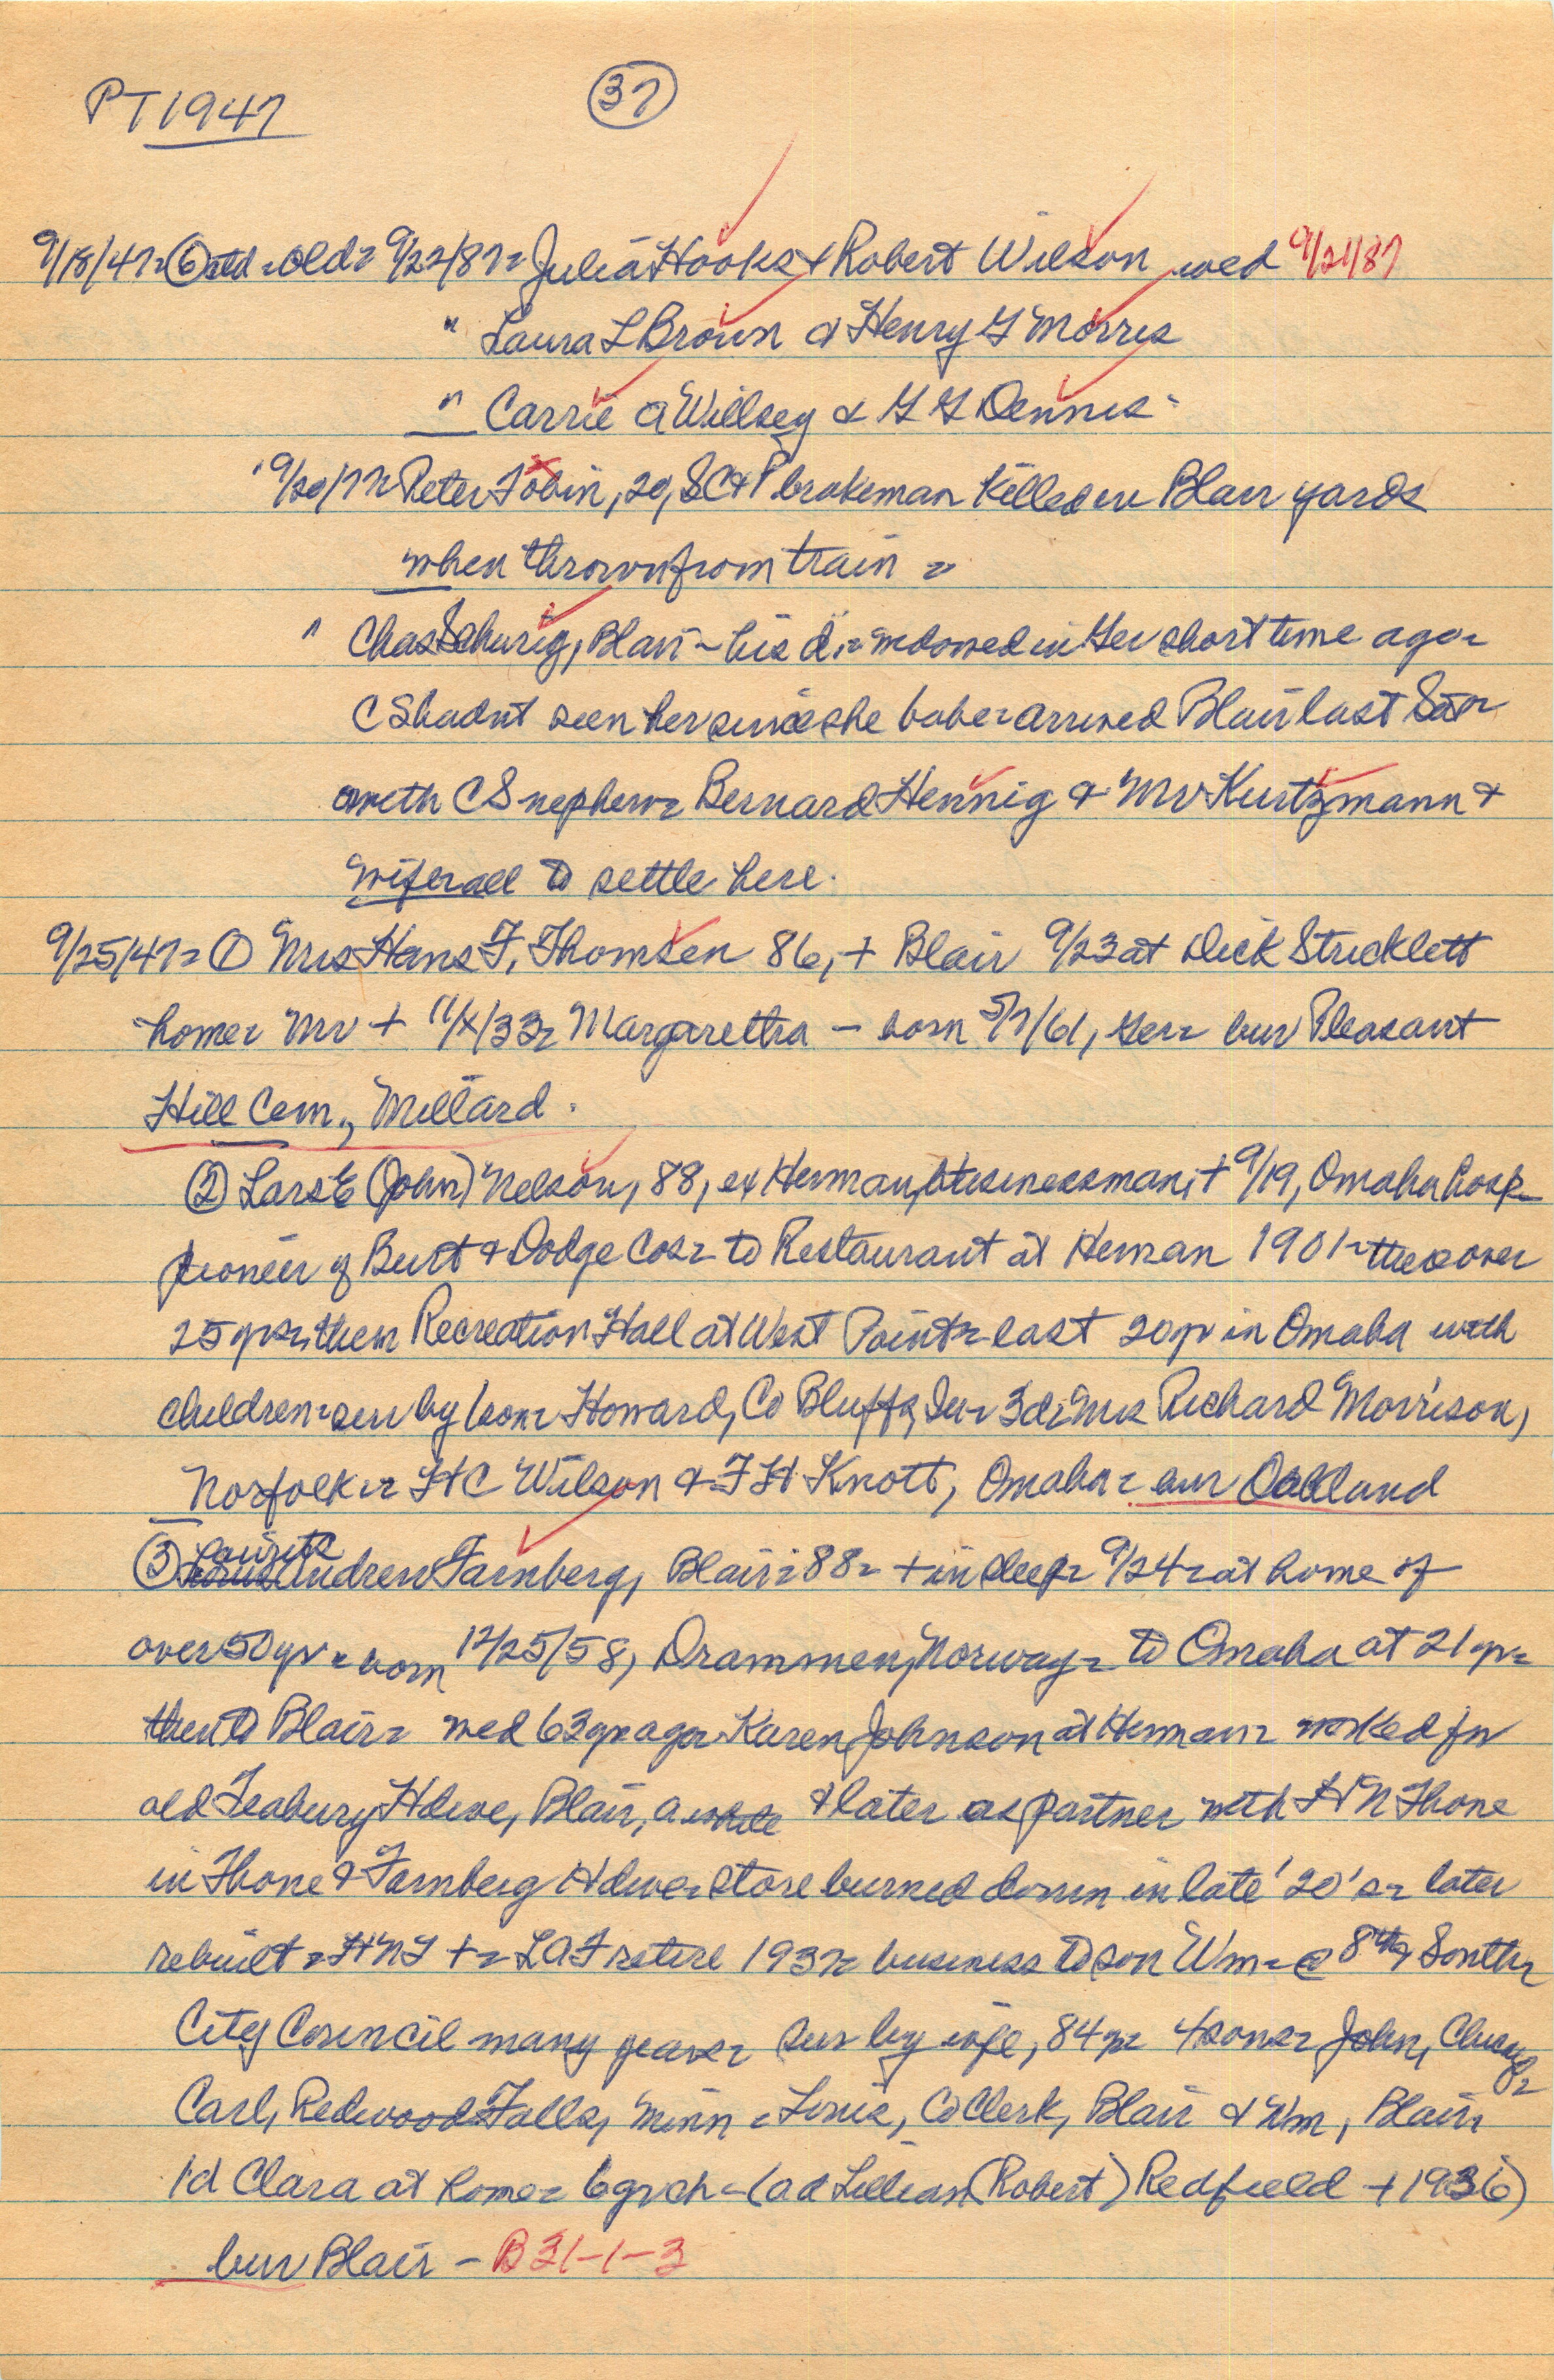 PT 1947
37
9/18/47 = 6 old = 9/22/87 = Julia Hooks & Robert Wilson wed 9/21/87
" Laura L Brown & Henry G Morris
" Carrie A Willsey & G G Dennis -
9/20/77 = Peter Tobin, 20, SC&P brakeman killed in Blair yards
when thrown from train =
" Chas Schurig, Blair - his d. = widowed in Ger short time ago =
CS hadnt seen her since she babe = arrived Blair last Sat =
with CS nephew = Bernard Hennig & Mr Kurtzmann &
wife = all to settle here.
9/25/47 = 1 Mrs Hans F. Thomsen 86, + Blair 9/23 at Dick Stricklett
home = Mr + 11/X/33 = Margarettra - born 5/7/61, Ger = bur Pleasant
Hill Cem., Millard.
2 Lars E (John) Nelson, 88, ex Herman businessman, + 9/19, Omaha hosp =
pioneer of Burt & Dodge Cos = to Restaurant at Herman 1901 = there over
25 yrs = then Recreation Hall at West Point = last 20 yr in Omaha with
children = sur by son = Howard, Co Bluffs, Ia = 3 d = Mrs Richard Morrison,
Norfolk = HC Wilson & FH Knott, Omaha = bur Oakland
3 Lauritz Andrew Farnberg, Blair = 88 = + in sleep = 9/24 = at home of
over 50 yr = born 12/25/58, Drammen, Norway = to Omaha at 21 yr =
then to Blair = wed 63 yrs ago = Karen Johnson at Herman = worked for
old Hdwe, Blair, a while & later as partner with HN Thone
in Thone & Farnberg Hdwe = store burned down in late '20's = later
rebuilt = HNT + = LAF retire 1937 = business to son Wm = @ 8th & South =
City Council many years = sur by wife, 84 yr = 4 sons = John, Chicago =
Carl, Redwood Falls, Minn = Louis, Co Clerk, Blair & Wm, Blair =
1 d Clara at home = 6 grch = (a d Lillian (Robert) Redfield + 1936)
bur Blair - B 31-1-3